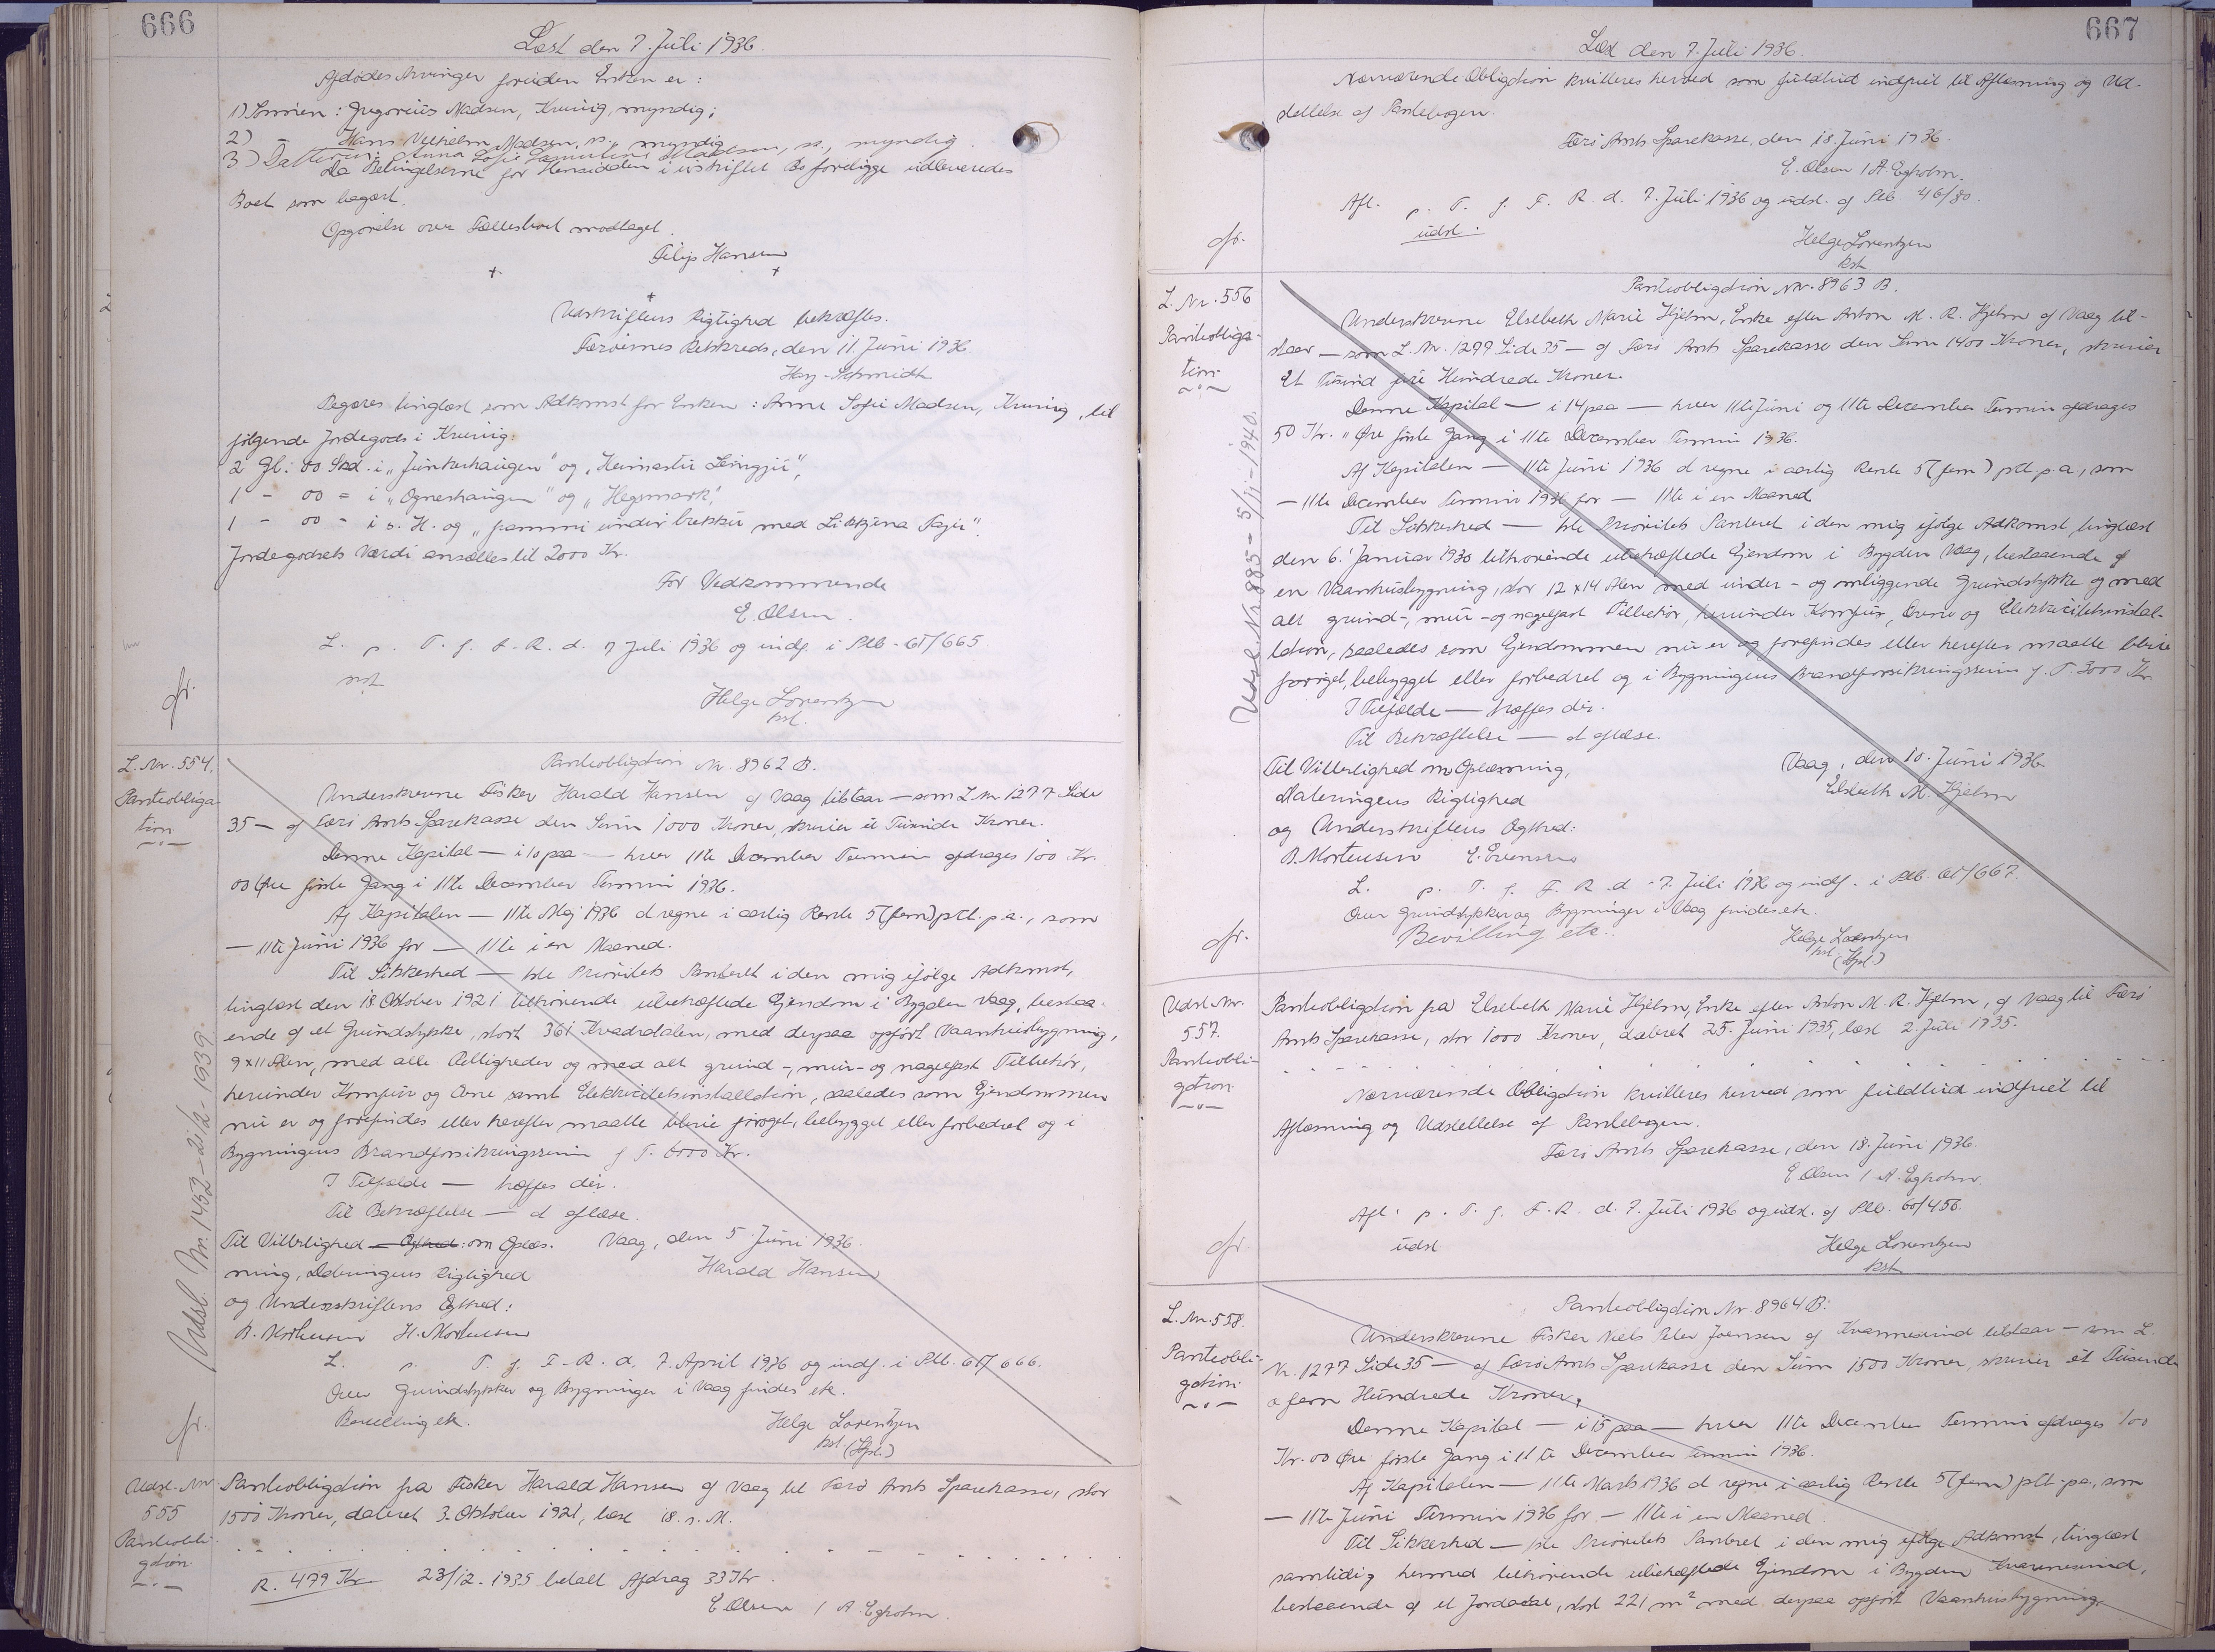 666
Læst den 7. Juli 1936.
Afdødes Arvinger foruden Enken er:
1) Sønnen: Gregorius Madsen, Kunoy, myndig;
2) — Hans Vilhelm Madsen, s., myndig
3) Datteren: Anna Sofie Madsen, s., myndig.
Da Betingelserne for Hensidden i uskiftet Bo foreligge udleveredes
Boet som begært.
Opgørelse over Fællesboet modtaget.
Filip Hansen
Udskriftens Rigtighed bekræftes.
Færøernes Retskreds, den 11. Juni 1936.
Hey-Schmidt
Begæres tinglæst som Adkomst for Enken: Anne Sofie Madsen, Kunoy, til
følgende Jordegods i Kunoy:
2 Gl: 00 Skd. i „Junkarhaugen" og „Heimastu Leingju",
1 - 00 - i „Ogneshaugen" og „Hegsmark",
1 - 00 - i s. H. og „frammi undir brekku med
Jordegodsets Værdi ansættes til 2000 Kr.
For Vedkommende
E. Olsen.
L. p. T. f. F. R. d. 7 Juli 1936 og indf. i Ptb. 61/665
Helge Lorentzen
kst.
cfr.
L. Nr. 554.
Pantobliga-
tion
Pantobligation Nr. 8962 B.
Underskrevne Fisker Harald Hansen af Vaag tilstaar — som L Nr 1277 Side
35 — af Færø Amts Sparekasse den Sum 1000 Kroner, skriver et Tusinde Kroner.
Denne Kapital — i 10 paa — hver 11te December Termin afdrages 100 Kr.
00 Øre første Gang i 11te December Termin 1936.
Af Kapitalen — 11te Maj 1936 at regne i aarlig Rente 5 (fem) pCt. p. a., som
— 11te Juni 1936 for — 11te i en Maaned.
Til Sikkerhed — 1ste Prioritets Panteret i den mig ifølge Adkomst,
tinglæst den 18 Oktober 1921 tilhørende ubehæftede Ejendom i Bygden Vaag, bestaa-
ende af et Grundstykke, stort 361 Kvadratalen, med derpaa opført Vaanhusbygning,
9x11 Alen, med alle Herligheder og med alt grund-, mur- og nagelfast Tilbehør,
herunder Komfur og Ovne samt Elektricitetsinstallation, saaledes som Ejendommen
nu er og forefindes eller herefter maatte blive forøget, bebygget eller forbedret og i
Bygningens Brandforsikringssum f. T. 6000 Kr.
I Tilfælde — træffes der.
Til Bekræftelse — at aflæse.
Til Vitterlighed — Ægthed: om Oplæs- Vaag, den 5 Juni 1936.
ning, Dateringens Rigtighed Harald Hansen
og Underskriftens Ægthed:
B. Mortensen H. Mortensen
L. p. T. f. F. R. d. 7. April 1936 og indf. i Ptb. 61/666.
Over Grundstykker og Bygninger i Vaag findes etc.
Bevilling etc. Helge Lorentzen
kst. (Hpl.)
cfr.
Udsl. Nr. 1452 - 21/12 - 1939.
Udsl. Nr
555
Pantobli-
gation
Pantobligation fra Fisker Harald Hansen af Vaag til Færø Amts Sparekasse, stor
1500 Kroner, dateret 3. Oktober 1921, læst 18. s. M.
R. 479 Kr 23/12. 1935 betalt Afdrag 33 Kr.
E Olsen / A. Egholm.
667
Læst den 7. Juli 1936.
Nærværende Obligation kvitteres herved som fuldtud indfriet til Aflæsning og Ud-
slettelse af Pantebogen.
Færø Amts Sparekasse, den 18. Juni 1936.
E. Olsen / A. Egholm.
Afl. p. T. f. F. R. d. 7. Juli 1936 og udsl. af Ptb 46/80.
udsl.
Helge Lorentzen
kst.
cfr.
L. Nr. 556
Pantobliga-
tion
Pantobligation Nr. 8963 B.
Underskrevne Elsebeth Marie Hjelm, Enke efter Anton M. R. Hjelm af Vaag til-
staar — som L. Nr. 1299 Side 35 — af Færø Amts Sparekasse den Sum 1400 Kroner, skriver
Et Tusind fire Hundrede Kroner.
Denne Kapital — i 14 paa — hver 11te Juni og 11te December Termin afdrages
50 Kr. „ Øre første Gang i 11te December Termin 1936.
Af Kapitalen — 11te Juni 1936 at regne i aarlig Rente 5 (fem) pCt. p. a., som
— 11te December Termin 1936 for — 11te i en Maaned
Til Sikkerhed — 1ste Prioritets Panteret i den mig ifølge Adkomst, tinglæst
den 6. Januar 1930 tilhørende ubehæftede Ejendom i Bygden Vaag, bestaaende af
en Vaanhusbygning, stor 12 x 14 Alen med under- og omliggende Grundstykke og med
alt grund-, mur- og nagelfast Tilbehør, herunder Komfur, Ovne og Elektricitetsinstal-
lation, saaledes som Ejendommen nu er og forefindes eller herefter maatte blive
forøget, bebygget eller forbedret og i Bygningens Brandforsikringssum f. T. 3000 Kr.
I Tilfælde — træffes der.
Til Bekræftelse — at aflæse.
Til Vitterlighed om Oplæsning, Vaag, den 10. Juni 1936
Dateringens Rigtighed Elsbeth M. Hjelm
og Underskriftens Ægthed:
B. Mortensen E. Evensen
L. p. T. f. F. R. d. 7. Juli 1936 og indf. i Ptb. 61/667.
Over Grundstykker og Bygninger i Vaag findes etc.
Bevilling etc.
Helge Lorentzen
kst. (Hpl.)
cfr.
Udsl. Nr. 885 - 5/11 - 1940.
Udsl. Nr.
557.
Pantobli-
gation
Pantobligation fra Elsebeth Marie Hjelm, Enke efter Anton M. R. Hjelm, af Vaag til Færø
Amts Sparekasse, stor 1000 Kroner, dateret 25. Juni 1935, læst 2. Juli 1935.
Nærværende Obligation kvitteres herved som fuldtud indfriet til
Aflæsning og Udslettelse af Pantebogen.
Færø Amts Sparekasse, den 18. Juni 1936.
E Olsen / A. Egholm.
Afl. p. T. f. F. R. d. 7. Juli 1936 og udsl. af Ptb. 60/456.
udsl
Helge Lorentzen
kst.
cfr.
L. Nr. 558.
Pantobli-
gation
Pantobligation Nr. 8964 B:
Underskrevne Fisker Niels Peter Joensen af Kvannesund tilstaar — som L.
Nr. 1277 Side 35 — af Færø Amts Sparekasse den Sum 1500 Kroner, skriver et Tusinde
o fem Hundrede Kroner.
Denne Kapital — i 15 paa — hver 11te December Termin afdrages 100
Kr. 00 Øre første Gang i 11te December Termin 1936.
Af Kapitalen — 11te Marts 1936 at regne i aarlig Rente 5 (fem) pCt. p.a., som
— 11te Juni Termin 1936 for — 11te i en Maaned.
Til Sikkerhed — 1ste Prioritets Panteret i den mig ifølge Adkomst, tinglæst
samtidig hermed tilhørende ubehæftede Ejendom i Bygden Kvannesund,
bestaaende af et Jordareal, stort 221 m² med derpaa opført Vaanhusbygning,